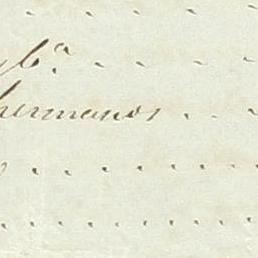 yb.ª
hermanos